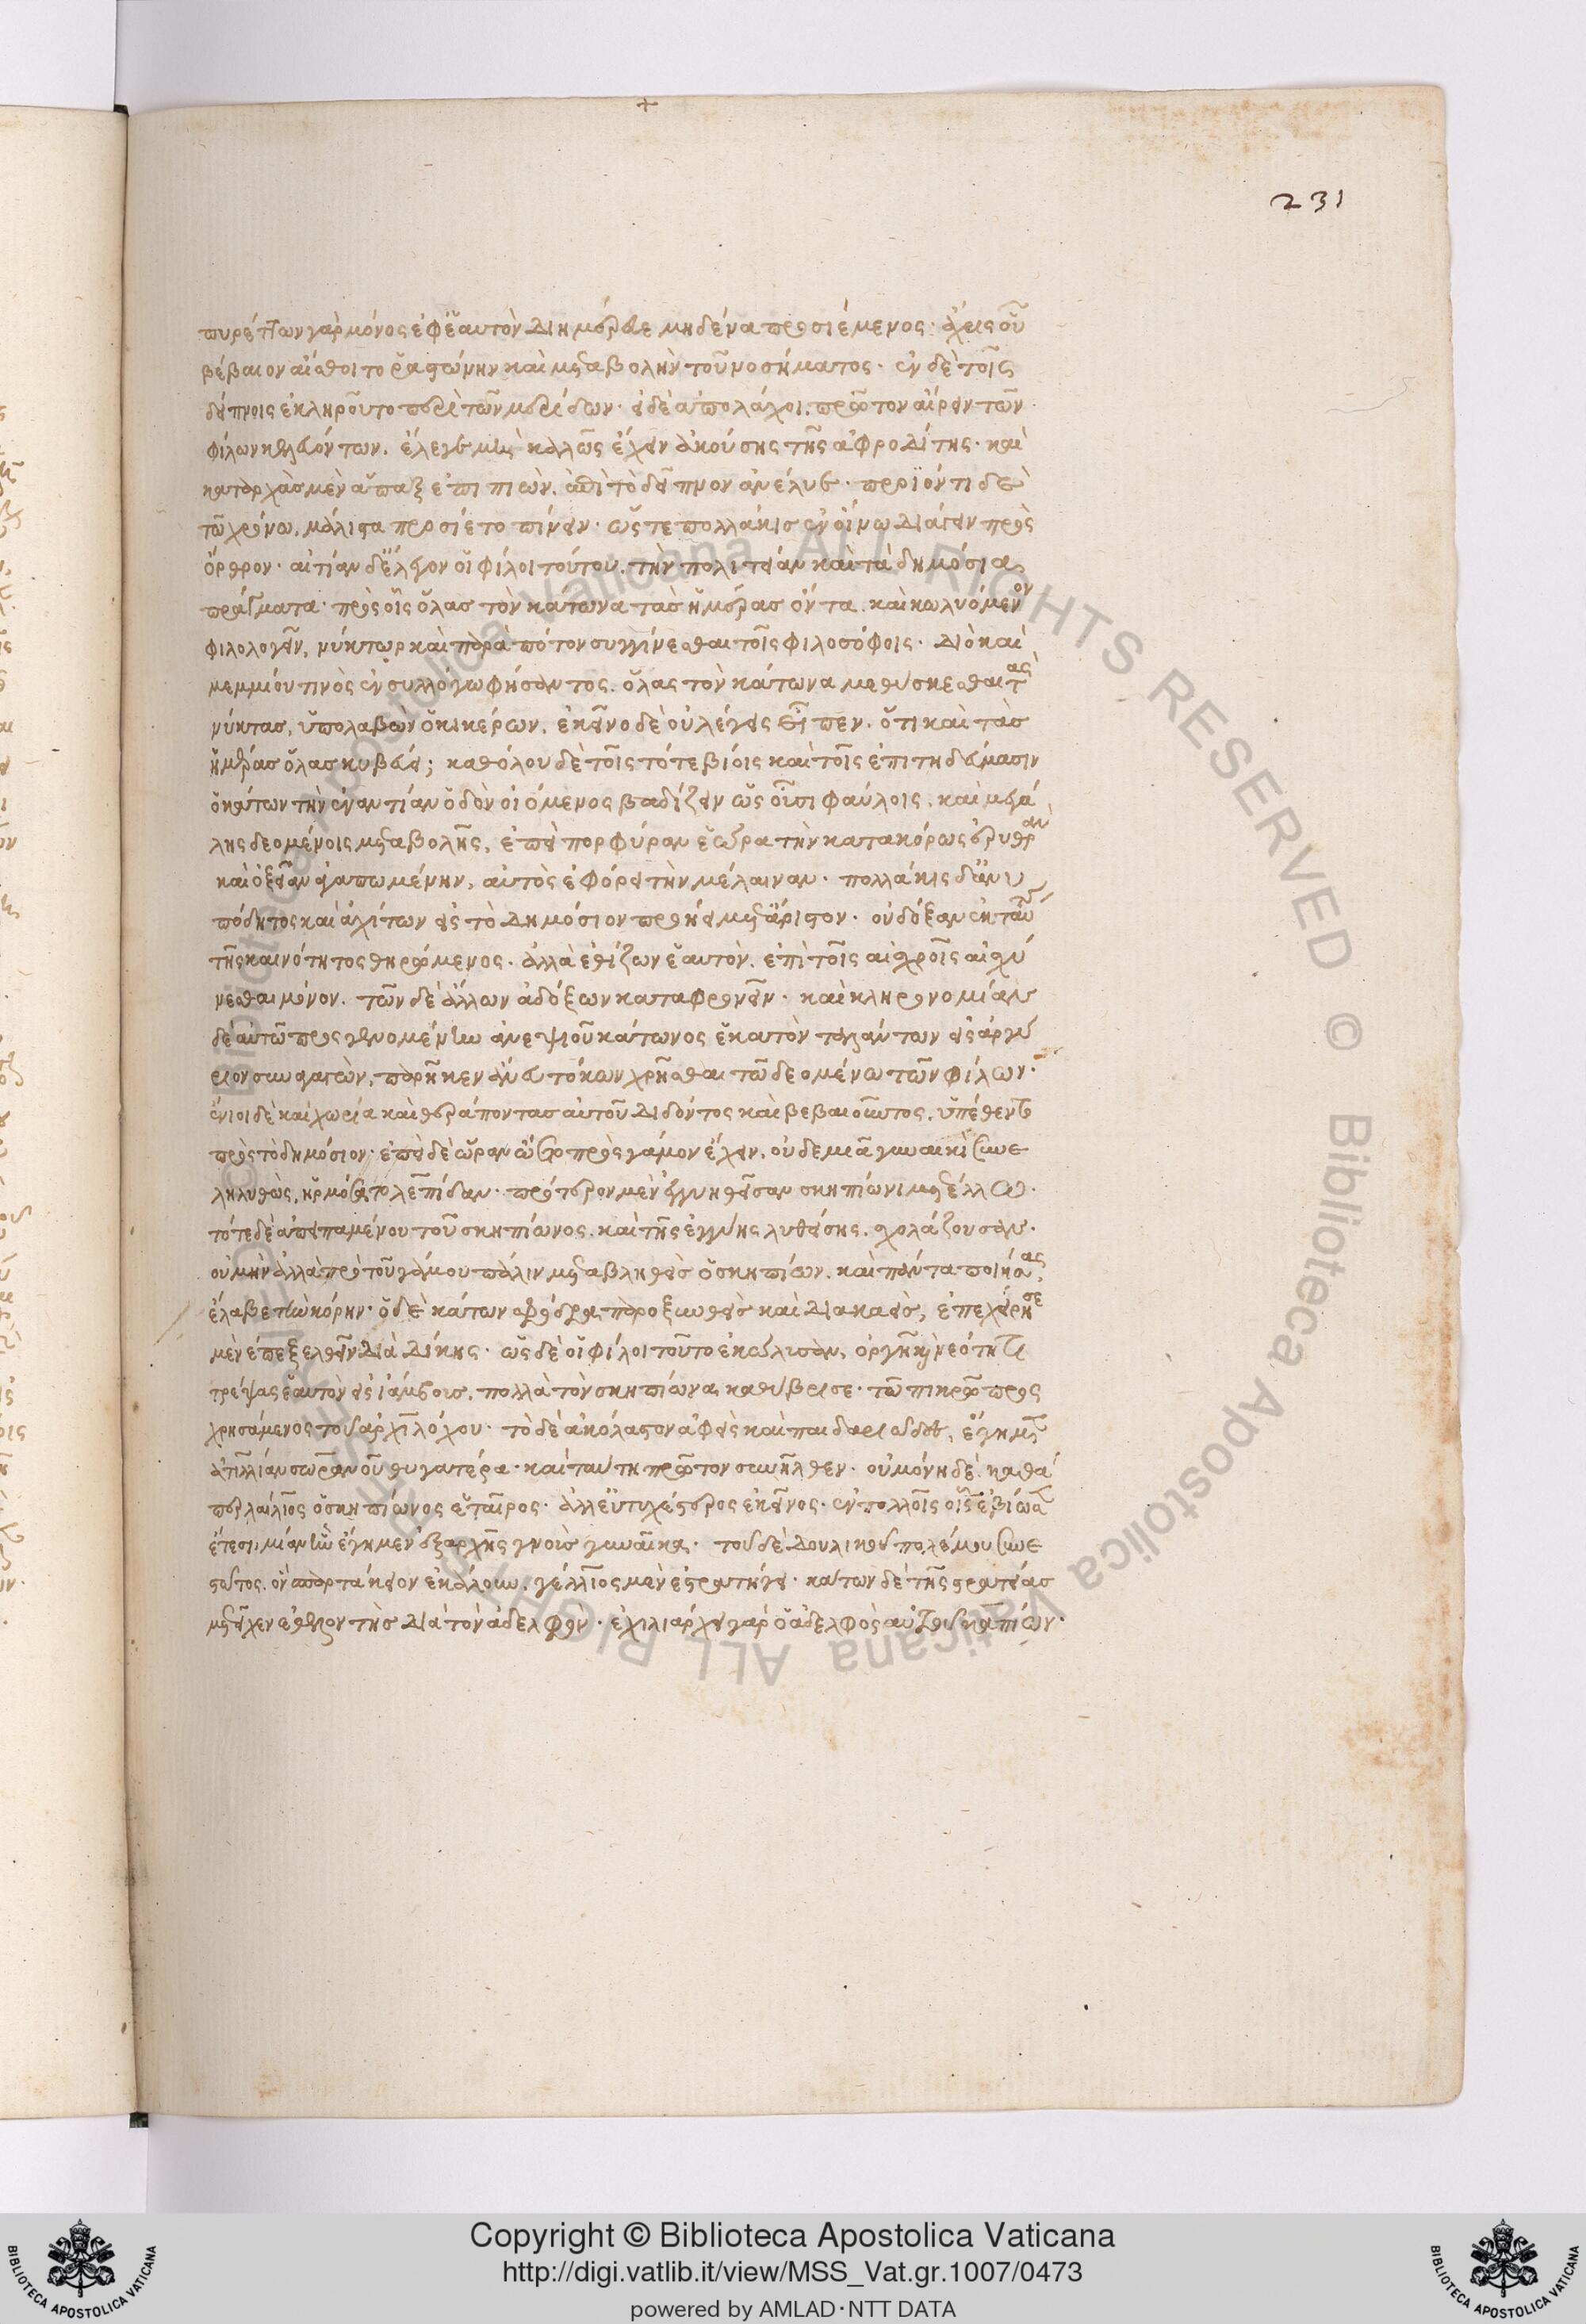 231
πυρέττων γὰρ μόνος ἐφ' ἑαυτὸν διημέρευε μηδένα προσιέμενος· ἄχρις οὗ
βέβαιον αἴσθοιτο ῥᾳστώνην καὶ μεταβολὴν τοῦ νοσήματος· ἐν δὲ τοῖς
δείπνοις ἐκληροῦτο περὶ τῶν μερίδων· εἰ δὲ ἀπολάχοι, πρῶτον αἴρειν τῶν
φίλων κελευόντων, ἔλεγε μὴ καλῶς ἔχειν ἀκούσης τῆς ἀφροδίτης· καὶ
κατ' ἀρχὰς μὲν ἅπαξ ἐπιπιὼν, ἐπὶ τὸ δεῖπνον ἀνέλυε· προϊόντι δὲ
τῷ χρόνω, μάλιστα προσίετο πίνειν· ὥστε πολλάκις ἐν οἴνω διάγειν πρὸς
ὄρθρον· αἰτίαν δ' ἔλεγον οἱ φίλοι τούτου, τὴν πολιτείαν καὶ τὰ δημόσια
πράγματα· πρὸς οἷς ὅλας τὸν κάτωνα τὰς ἡμέρας ὄντα, καὶ κωλυόμενον
φιλολογεῖν, νύκτωρ καὶ παρὰ πότον συγγίνεσθαι τοῖς φιλοσόφοις· διὸ καὶ
μεμμίου τινὸς ἐν συλλόγω φήσαντος, ὅλας τὸν κάτωνα μεθύσκεσθαι τὰς
νύκτας, ὑπολαβὼν ὁ κικέρων, ἐκεῖνο δὲ οὐ λέγεις εἶπεν, ὅτι καὶ τὰς
ἡμέρας ὅλας κυβεύει; καθόλου δὲ τοῖς τότε βίοις καὶ τοῖς ἐπιτηδεύμασιν
ὁ κάτων τὴν ἐναντίαν ὁδὸν οἰόμενος βαδίζειν ὡς οὖσι φαύλοις, καὶ μεγά
λης δεομένοις μεταβολῆς, ἐπεὶ πορφύραν ἑώρα τὴν κατακόρως ἐρυθρὰν
καὶ ὀξεῖαν ἀγαπωμένην, αὐτὸς ἐφόρει τὴν μέλαιναν· πολλάκις δ' ἀνυ
πόδητος καὶ ἀχίτων εἰς τὸ δημόσιον προῄει μετ' ἄριστον· οὐ δόξαν ἐκ ταύ
της καινότητος θηρώμενος· ἀλλὰ ἐθίζων ἑαυτὸν, ἐπὶ τοῖς αἰσχροῖς αἰσχύ
νεσθαι μόνον, τῶν δὲ ἄλλων ἀδόξων καταφρονεῖν· καὶ κληρονομίαν
δὲ αὐτῷ προσγενομένην ἀνεψιοῦ κάτωνος ἑκατὸν ταλάντων εἰς ἀργύ
ριον συναγαγὼν, παρῆκεν ἄνευ τόκων χρῆσθαι τῷ δεομένω τῶν φίλων·
ἔνιοι δὲ καὶ χωρία καὶ θεράποντας αὐτοῦ διδόντος καὶ βεβαιοῦντος, ὑπέθεντο
πρὸς τὸ δημόσιον· ἐπεὶ δὲ ὥραν ᾤετο πρὸς γάμον ἔχειν, οὐδεμιᾷ γυναικὶ συνε
ληλυθὼς, ἡρμόσατο λεπίδαν· πρότερον μὲν ἐγγυηθεῖσαν σκηπίωνι μετέλλω·
τότε δὲ ἀπειπαμένου τοῦ σκηπίωνος, καὶ τῆς ἐγγύης λυθείσης, σχολάζουσαν·
οὐ μὴν ἀλλὰ πρὸ τοῦ γάμου πάλιν μεταβληθεὶς ὁ σκηπίων, καὶ πάντα ποιήσας,
ἔλαβε τὴν κόρην· ὁ δὲ κάτων σφόδρα παροξυνθεὶς καὶ διακαεὶς, ἐπεχείρησε
μὲν ἐπεξελθεῖν διὰ δίκης· ὡς δὲ οἱ φίλοι τοῦτο ἐκώλυσαν, ὀργῇ καὶ νεότητι
τρέψας ἑαυτὸν εἰς ἰάμβους, πολλὰ τὸν σκηπίωνα καθύβρισε· τῷ πικρῷ προσ
χρησάμενος τοῦ ἀρχιλόχου· τὸ δὲ ἀκόλαστον ἀφεὶς καὶ παιδαριῶδες, ἔγημε
ἀτιλλίαν σωρανοῦ θυγατέρα· καὶ ταύτη πρῶτον συνῆλθεν· οὐ μόνη δὲ καθά
περ λαίλιος ὁ σκηπίωνος ἑταῖρος· ἀλλ' εὐτυχέστερος ἐκεῖνος· ἐν πολλοῖς οἷς ἐβίωσεν
ἔτεσι, μίαν ἣν ἔγημεν ἐξ ἀρχῆς γνοὺς γυναῖκα· τοῦ δὲ δουλικοῦ πολέμου συνε
στῶτος, ὃν σπαρτάκειον ἐκάλουν, γέλλιος μὲν ἐστρατήγει· κάτων δὲ τῆς στρατείας
μετεῖχεν ἐθελοντὴς διὰ τὸν ἀδελφὸν· ἐχιλιάρχει γὰρ ὁ ἀδελφὸς αὐτοῦ καιπίων·
© Biblioteca Apostolica Vaticana ALL RIGHTS RESERVED © Biblioteca Apostolica Vaticana ALL RIGHTS RESERVED
BIBLIOTECA APOSTOLICA VATICANA
Copyright © Biblioteca Apostolica Vaticana
http://digi.vatlib.it/view/MSS_Vat.gr.1007/0473
powered by AMLAD·NTT DATA
BIBLIOTECA APOSTOLICA VATICANA